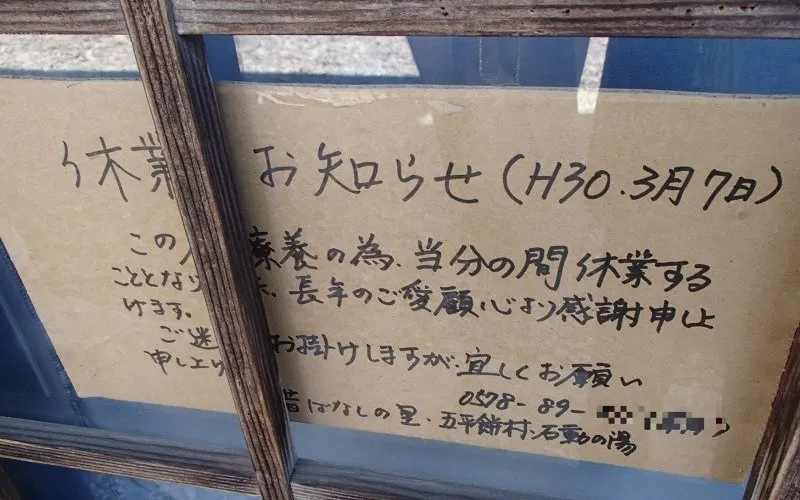 休業 お知らせ（H30.3月7日）
この 療養の為、当分の間休業する
こととなり 、長年のご愛顧心より感謝申上
げます。
ご迷 お掛けしますが、宜しくお願い
申し上げ
0578-89-
昔ばなしの里・五平餅村・石動の湯